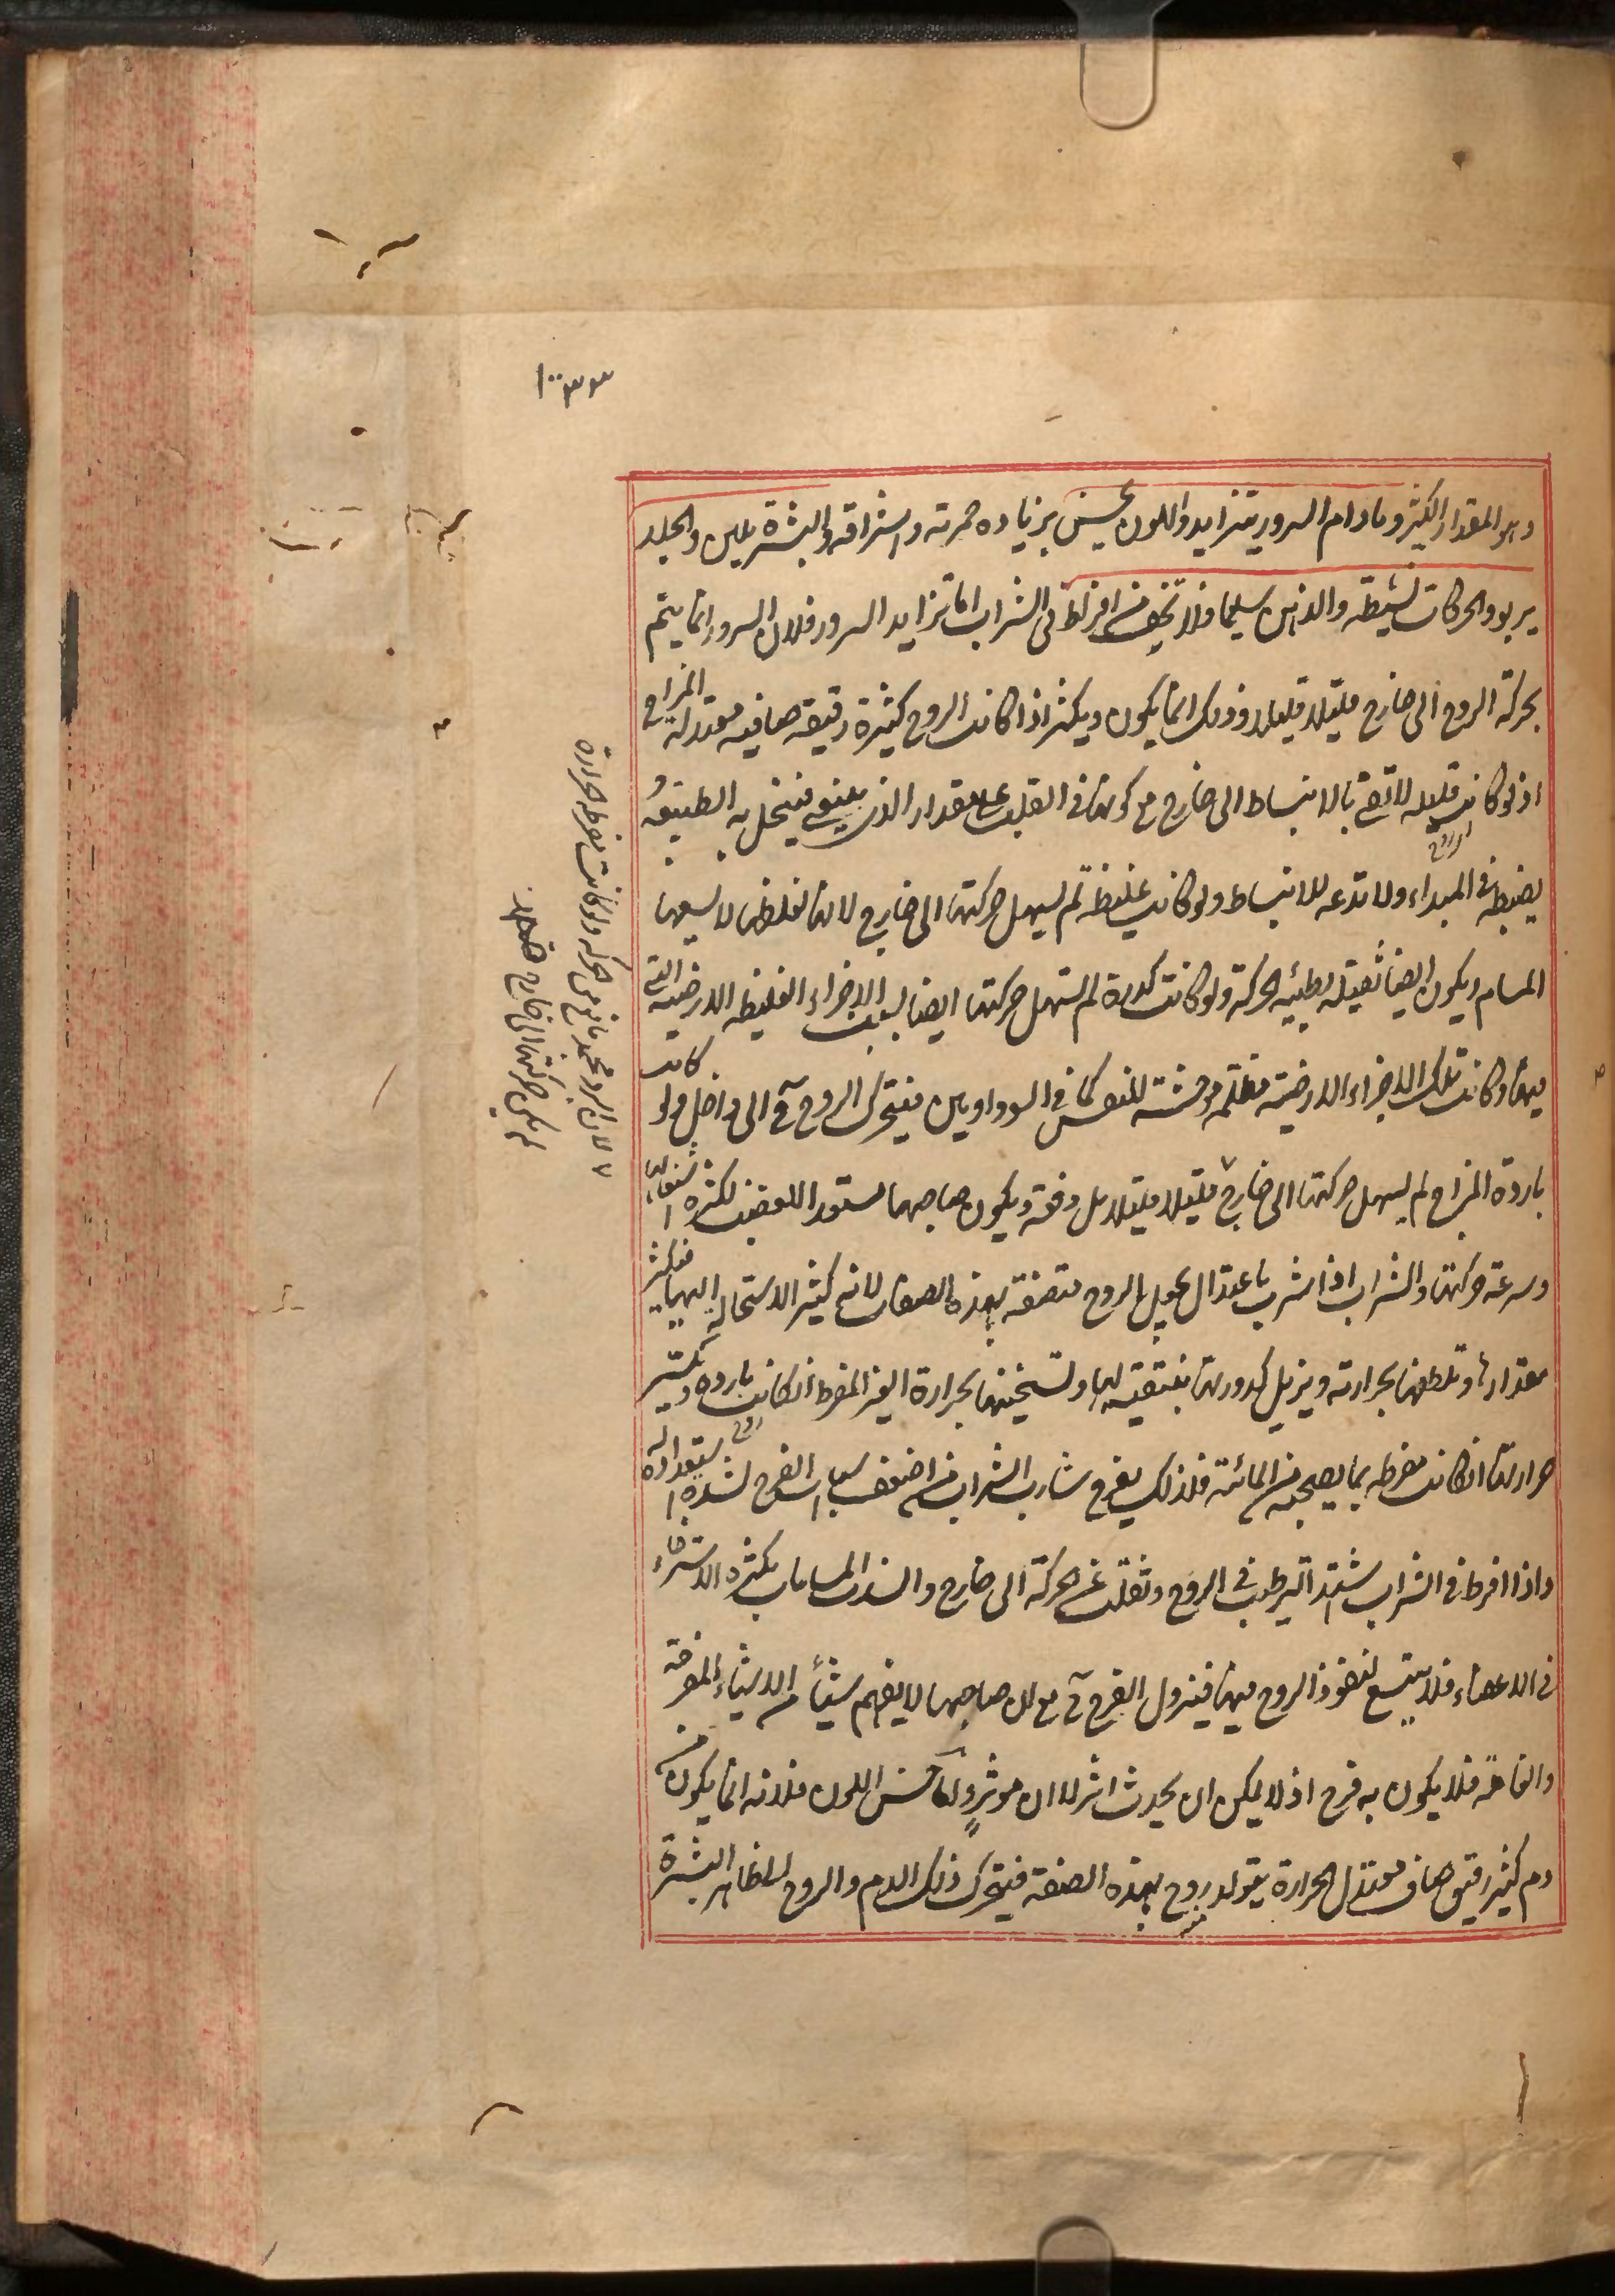 وهو المقدار الكثير وما دام السرور يتزايد واللون يحسن بزيادة حمرته واشراقه والبشرة تلين والجلد
يربو والحركات نشيطه والذهن سليما فلا تخف من افراط فى الشراب اما تزايد السرور فلان السرور انما يتم
بحركة الروح الى خارج قليلا قليلا وذلك انما يكون ويكثر اذا كانت الروح كثيرة رقيقه صافيه معتدلة المزاج
اذ لو كانت قليله لا تفى بالانبساط الى خارج مع كونها فى القلب على المقدار الذى ينبغى فيبخل به الطبيعه
يضبطه فى المبداء ولا تدعه للانبساط ولو كانت غليظه لم يسهل حركتها الى خارج لانها لغلظها لا يسعها
المسام ويكون ايضا ثقيله بطيئه الحركة ولو كانت كدرة لم تسهل حركتها ايضا بسبب الاجزاء الغليظه الارضيه التى
فيها وكانت تلك الاجزاء الارضيه مظلمه موحشة للنفس كما فى السوداويين فيتحرك الروح ح الى داخل ولو كانت
باردة المزاج لم يسهل حركتها الى خارج قليلا قليلا بل دفعة ويكون صاحبها مستعدا للغضب لكثرة اشتعالها
وسرعة حركتها والشراب اذا شرب باعتدال يجعل الروح متصفة بهذه الصفات لانه كثير الاستحاله اليها فيكثر
مقدارها وتلطفها بحرارته ويزيل كدورتها بتنقيته لها وتسخينها بحرارة الغير المفرط ان كانت باردة ويكسر
حرارتها ان كانت مفرطه بما يصحبه من المائية فلذلك يفرح شارب الشراب من اضعف اسباب الفرح لشدة استعداده له
واذا افرط فى الشراب اشتد الترطيب فى الروح وثقلت عن الحركة الى خارج وانسدت المسامات بكثرة الاسترخاء
فى الاعضاء فلا يتسع لنفوذ الروح فيها فيزول الفرح ح مع ان صاحبها لا يفهم شيئا من الاشياء المفرحة
والغامة فلا يكون به فرح اذ لا يمكن ان يحدث اثر لا ان موثر واما حسن اللون فلانه انما يكون من
دم كثير رقيق صاف معتدل الحرارة يتولد منه روح بهذه الصفة فيتحرك ذلك الدم والروح الى ظاهر البشرة
لان البرد مجمد مانع من الحركه ولو كانت مفرطه الحرارة
لم يكن حركتها الى خارج